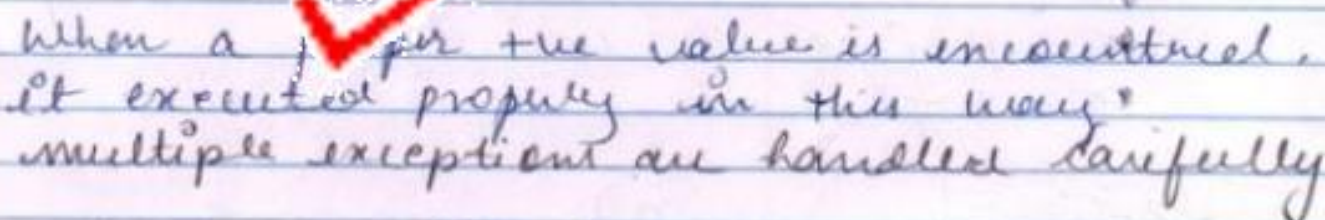 When a per +ve value is encountred.
it executed properly in this way.
multiple exceptions are handled carefully